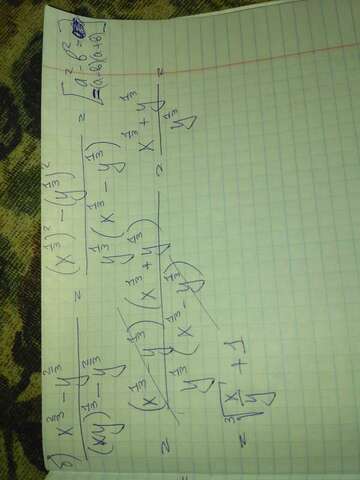 б) (x^{2/3} - y^{2/3}) / ((xy)^{1/3} - y^{2/3}) = ((x^{1/3})^2 - (y^{1/3})^2) / (y^{1/3}(x^{1/3} - y^{1/3})) = [a^2 - b^2 = (a-b)(a+b)]
= ((x^{1/3} - y^{1/3})(x^{1/3} + y^{1/3})) / (y^{1/3}(x^{1/3} - y^{1/3})) = (x^{1/3} + y^{1/3}) / y^{1/3} =
= ∛(x/y) + 1